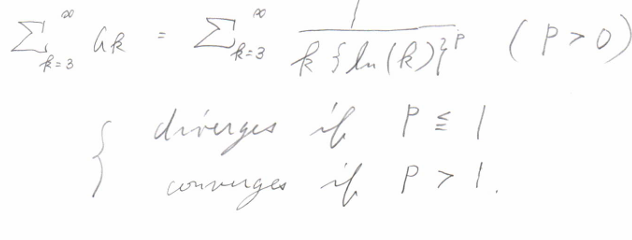 ∑_{k=3}^{∞} a_k = ∑_{k=3}^{∞} 1 / k {ln(k)}^p ( p > 0 )
{ diverges if p ≦ 1
converges if p > 1.